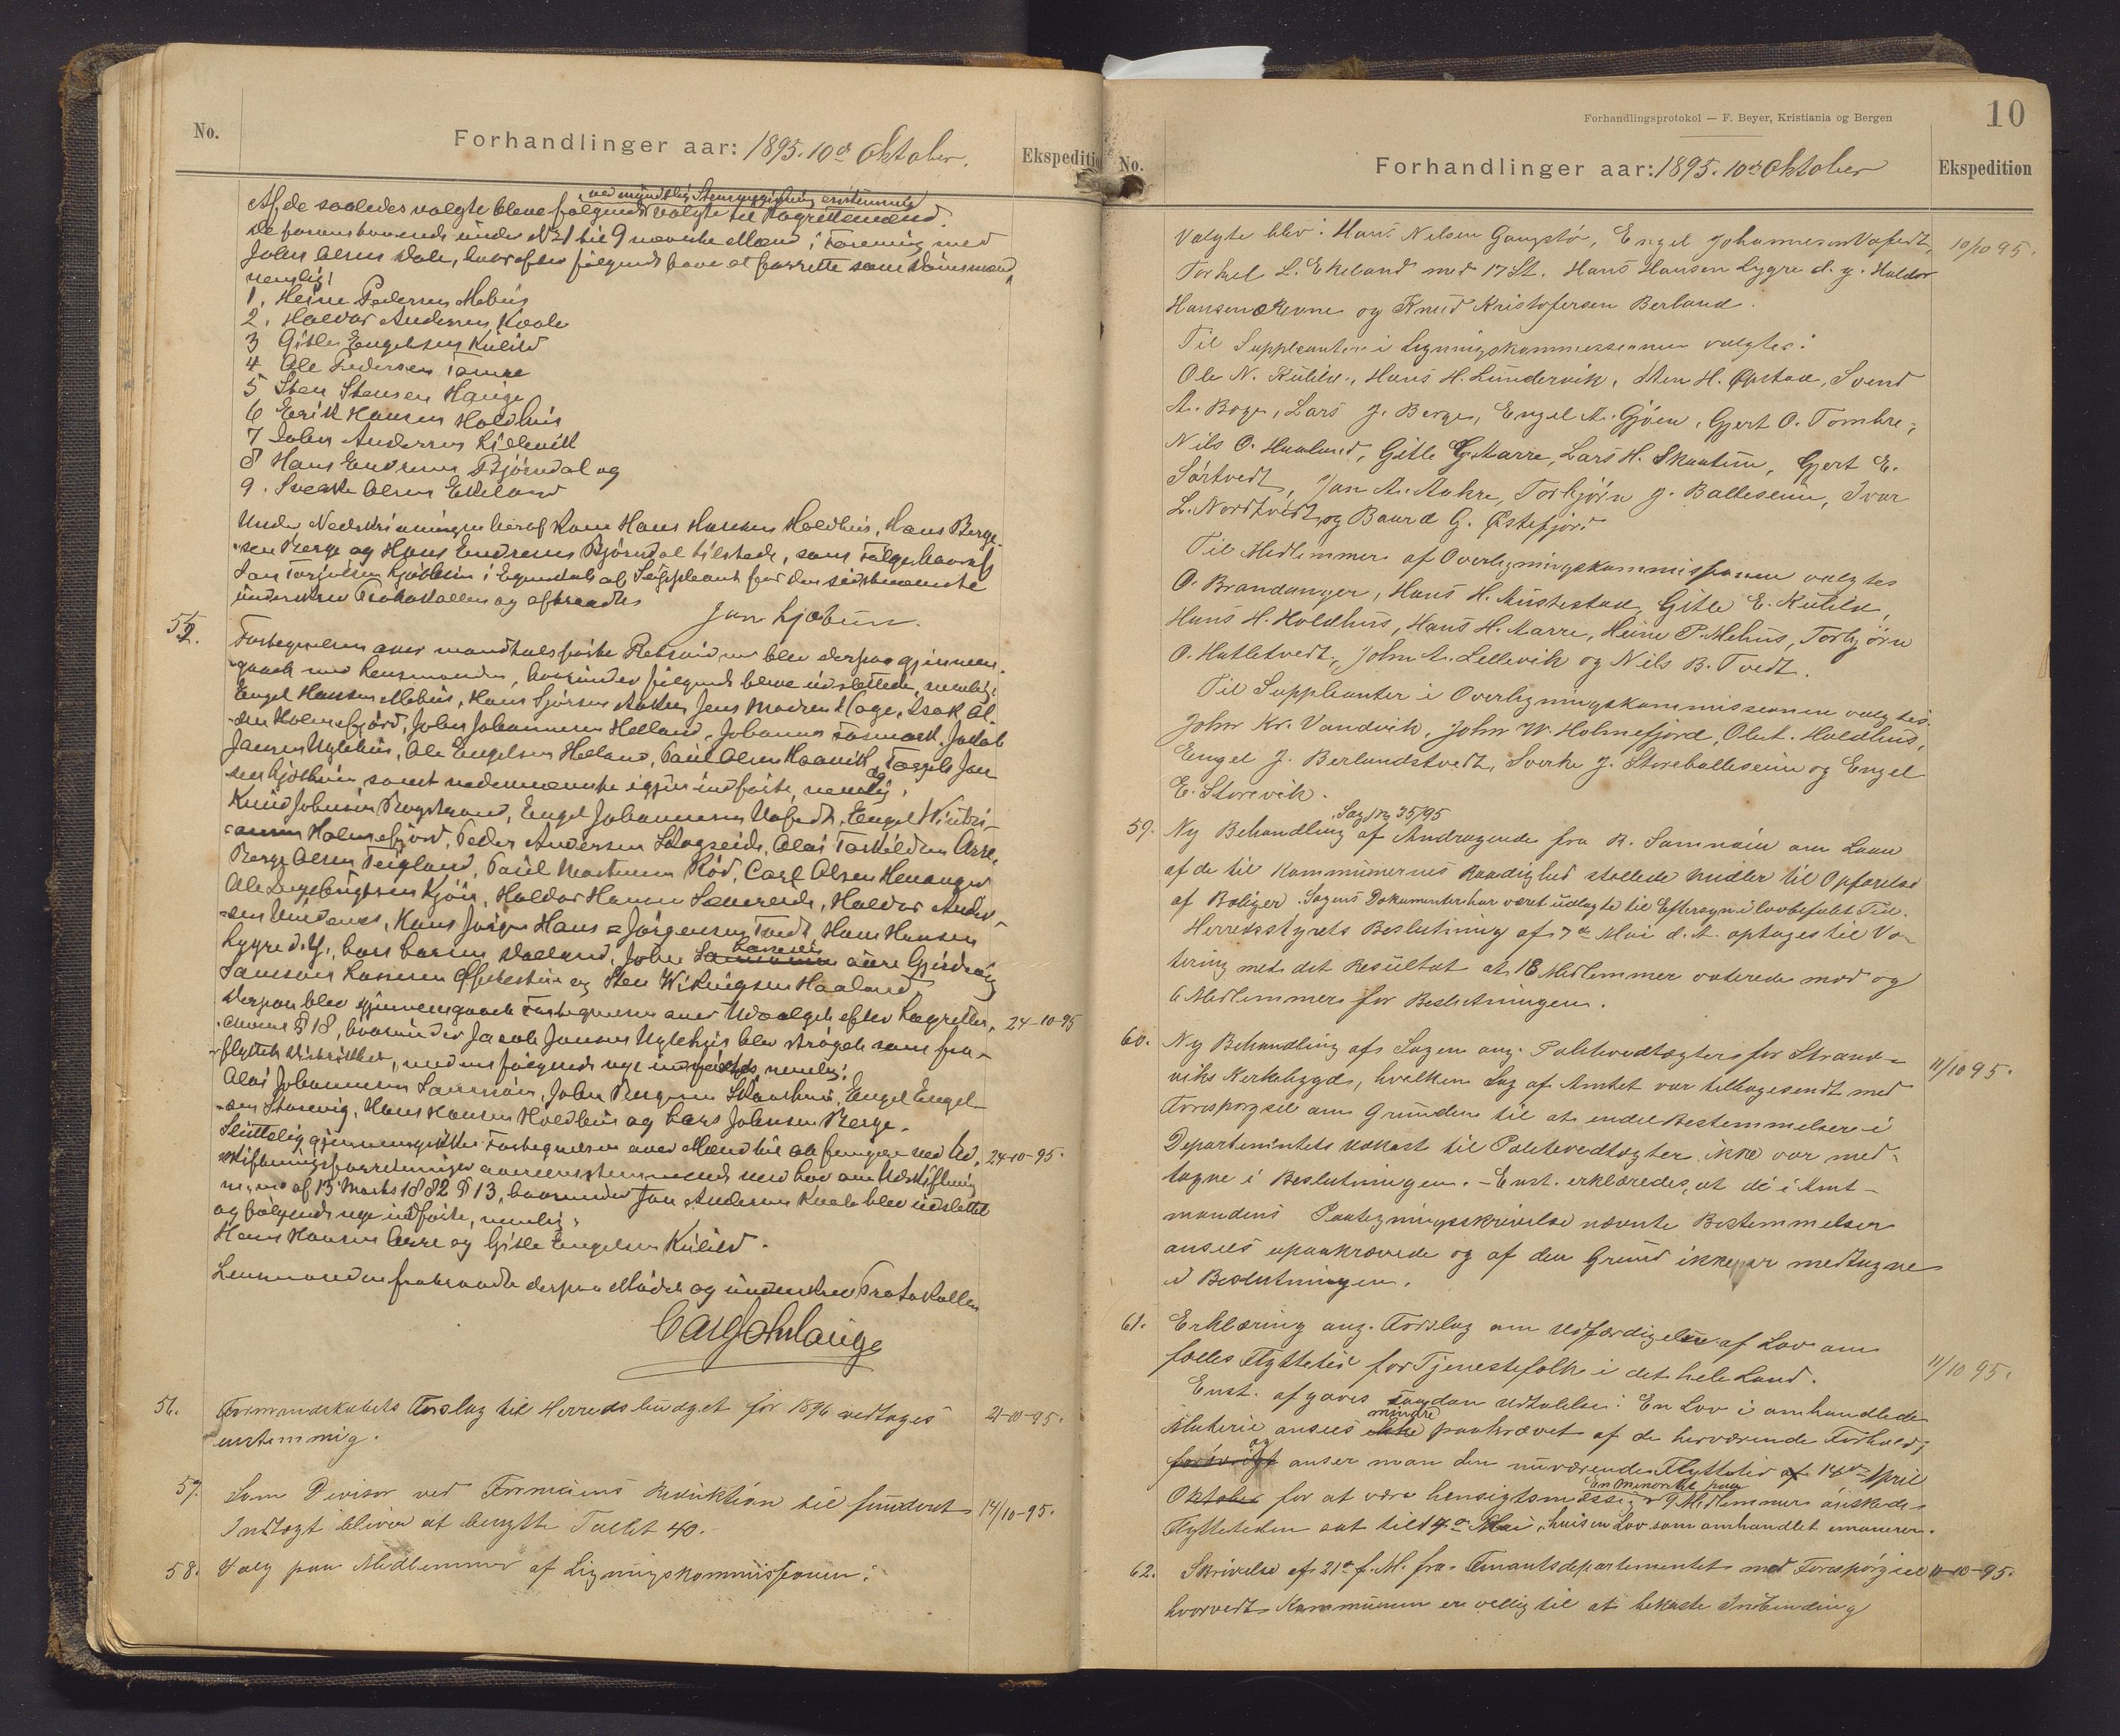 No.
Forhandlinger aar: 1895. 10de Oktober.
Ekspeditio
Af de saaledes valgte bleve følgende ved mundtlig Stemmegivning enstemmig valgte til Lagrettemænd.
De foranstaaende under No 1 til 9 nævnte Mænd i Forening med
John Olsen Dale, hvorefter følgende have at forrette som Domsmænd,
nemlig:
1. Heine Pedersen Mehus
2. Haldor Andersen Kvale
3 Gitle Engelsen Kulild
4 Ole Pedersen Tombre
5 Sten Stensen Hauge
6 Erik Hansen Holdhus
7 John Andersen Lillevik
8 Hans Endresen Bjørndal og
9. Sverke Olsen Ekeland
Under Nedskrivningen heraf kom Hans Hansen Holdhus, Hans Berge-
sen Berge og Hans Endresen Bjørndal tilstede, som Følge hvoraf
Jan Torjusen Ljøbein i Egenskab af Suppleant for den sidstnævnte
underskrev Protokollen og aftraadte
Jan Ljøbein.
55.
Fortegnelsen over mandtalsførte Retsvidner blev derpaa gjennem-
gaaet med Lensmanden, hvorunder følgende bleve udslettede, nemlig:
Engel Hansen Mehus, Hans Sjursen Aaken, Jens Madsen Hage, Isak Ol-
sen Holmefjord, John Johannesen Helland, Johannes Tosmark, Jakob
Jansen Uglehus, Ole Engelsen Helland, Paul Olsen Haavik og Torgils Jan-
sen Ljøbein, samt nedennævnte igjen indførte, nemlig:
Knud Johnsen Bogstrand, Engel Johannesen Vefedt, Engel Kristi-
ansen Holmefjord, Peder Andersen Skogseide, Olai Torkildsen Arre,
Berge Olsen Teigland, Paul Mortensen Rød, Carl Olsen Henanger
Ole Ingebrigtsen Gjøn, Haldor Hansen Sævereide, Haldor Ander-
sen Undenes, Hans Jørgen Hans = Jørgensen Tvedt, Hans Hansen
Lygre d. Y., Lars Larsen Daland, John Larsen øvre Gjerdevig
Samson Larsen Østestein og Sten Wikingsen Haaland
Derpaa blev gjennemgaaet Fortegnelsen over Udvalgte efter Lagrettes-
lovens § 18, hvorunder Jacob Jansen Uglehus blev strøget som fra-
flyttet Distriktet, medens følgende nye indførtes, nemlig:
24-10-95
Olai Johannesen Samnøen, John Bergesen Skaarhus, Engel Engel-
sen Storevig, Hans Hansen Holdhus og Lars Johnsen Berge.
Sluttelig gjennemgikkes Fortegnelsen over Mænd til at fungere ved Ud-
skiftningsforretninger overensstemmende med Lov om Udskiftning
24-10-95.
m. m. af 13 Marts 1882 § 13, hvorunder Jan Andersen Kvale blev udslettet
og følgende nye indførte, nemlig:
Hans Hansen Arre og Gitle Engelsen Kulild.
Lensmanden fratraadte derpaa Mødet og underskrev Protokollen
56.
Formandskabets Forslag til Herredsbudget for 1896 vedtages
enstemmig.
21-10-95.
57.
Som Divisor ved Formuens Reduktion til funderet
Indtægt bliver at benytte Tallet 40.
14/10-95.
58.
Valg paa Medlemmer af Ligningskommissionen:
Forhandlingsprotokol — F. Beyer, Kristiania og Bergen
10
No.
Forhandlinger aar: 1895. 10de Oktober
Ekspedition
Valgte blev: Hans Nelsen Gangstø, Engel Johannesen Vafedt,
10/10 95.
Torkel L. Ekeland med 17 St. Hans Hansen Lygre d. y. Haldor
Hansen Revne og Knud Kristofersen Berland.
Til Suppleanter i Ligningskommissionen valgtes:
Ole N. Kulild, Hans H. Lundervik, Sten H. Opstad, Svend
A. Boge, Lars J. Berge, Engel A. Gjøen, Gjert O. Tombre,
Nils O. Haaland, Gitle G. Aarre, Lars H. Skaatun, Gjert E.
Sørtvedt, Jan A. Aakre, Torbjørn J. Balleseim, Ivar
L. Nordtvedt og Baard G. Østefjord
Til Medlemmer af Overligningskommissionen valgtes
O. Brandanger, Hans H. Mustestad, Gitle E. Kulild,
Hans H. Holdhus, Hans H. Aarre, Heine P. Mehus, Torbjørn
O. Hatletvedt, John A. Lillevik og Nils B. Tvedt.
Til Suppleanter i Overligningskommissionen valgtes
John Kr. Vandvik, John W. Holmefjord, Ole A. Holdhus,
Engel J. Berlandstvedt, Sverke J. Storeballeseim og Engel
E. Storevik.
59.
Sag No 35/95
Ny Behandling af Andragende fra R. Samnøen om Laan
af de til Kommunernes Raadighed stillede Midler til Opførelse
af Boliger. Sagens Dokumenter har været udlagte til Eftersyn i lovbefalet Tid.
Herredsstyrets Beslutning af 7de Mai d. A. optages til Vo-
tering med det Resultat at 18 Medlemmer voterede mod og
6 Medlemmer for Beslutningen.
60.
Ny Behandling af Sagen ang. Politivedtægter for Strand-
viks Kirkebygd, hvilken Sag af Amtet var tilbagesendt med
11/10 95.
Forespørgsel om Grunden til at endel Bestemmelser i
Departementets Udkast til Politivedtægter ikke var med-
tagne i Beslutningen. - Enst. erklæredes, at de i Amt-
mandens Paategningsskrivelse nævnte Bestemmelser
ansees upaakrævede og af den Grund ikke er medtagne
i Beslutningen.
61.
Erklæring ang. Forslag om Udfærdigelse af Lov om
fælles Flyttetid for Tjenestefolk i det hele Land.
11/10 95.
Enst. afgaves saadan Udtalelse: En Lov i omhandlede
Materie ansees ikke mindre paakrævet af de herværende Forhold,
forøvrigt og anser man den nuværende Flyttetid af 14de April
Oktober for at være hensigtsmæssig. En Minoritet paa 9 Medlemmer ønskede
Flyttetiden sat til 14de Mai, hvis en Lov som omhandlet emanerer.
62.
Skrivelse af 21de f. M. fra Finantsdepartementet med Forespørgsel
11-10-95.
hvorvidt Kommunen er villig til at bekoste Indbinding